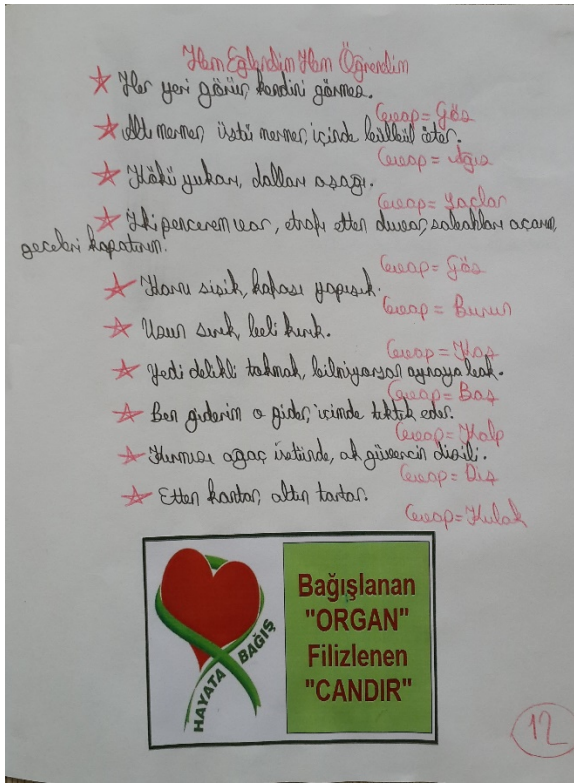 Hem Eğlendim Hem Öğrendim
Her yeri görür, kendini görmez.
Cevap = Göz
Altı mermer, üstü mermer, içinde bülbül öter.
Cevap = Ağız
Kökü yukarı, dalları aşağı.
Cevap = Saçlar
İki pencerem var, etrafı etten duvar, sabahları açarım,
geceleri kapatırım.
Cevap = Göz
Karnı şişik, kafası yapışık.
Cevap = Burun
Uzun sırık, beli kırık.
Cevap = Kaş
Yedi delikli tokmak, bilmiyorsan aynaya bak.
Cevap = Baş
Ben giderim o gider, içimde tıktık eder.
Cevap = Kalp
Kırmızı ağaç üstünde, ak güvercin dizili.
Cevap = Diş
Etten kantar, altın tartar.
Cevap = Kulak
HAYATA BAĞIŞ
Bağışlanan
"ORGAN"
Filizlenen
"CANDIR"
12